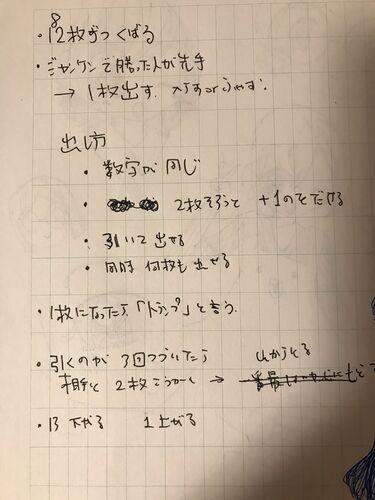 8
・12枚ずつくばる
・ジャンケンで勝った人が先手
→ 1枚出す. へらすorふやす.
出し方
・数字が同じ
・2枚そろうと +1のをだせる
・引いて出せる
・同時 何枚も出せる
・1枚になったら「トランプ」と言う.
・引くのが 3回つづいたら
相手と 2枚こうかん →
・13 下がる 1上がる